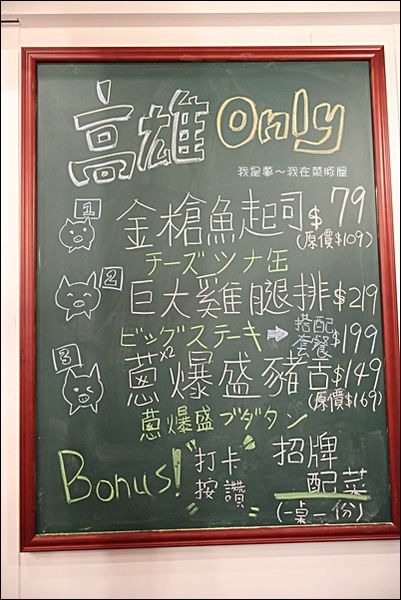 高雄 Only
我是夢～我在菜豚屋
1 金槍魚起司 $79
(原價$109)
チーズツナ缶
2 巨大雞腿排 $219
ビッグステーキ → 搭配套餐 $199
3 蔥x2爆盛豬舌 $149
(原價$169)
蔥爆盛ブダタン
Bonus! "打卡按讚"
招牌配菜
(一桌一份)